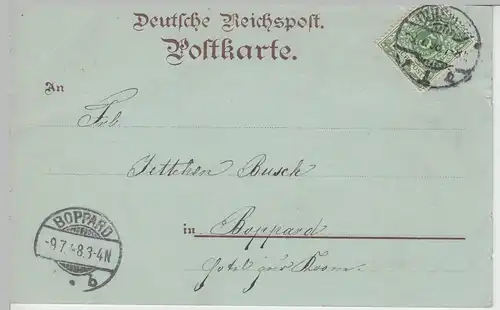 Deutsche Reichspost.
Postkarte.
An
Frl.
Jettchen Busch
in Boppard
Hotel zur Krone
BOPPARD
-9.7.98.3-4N
* b